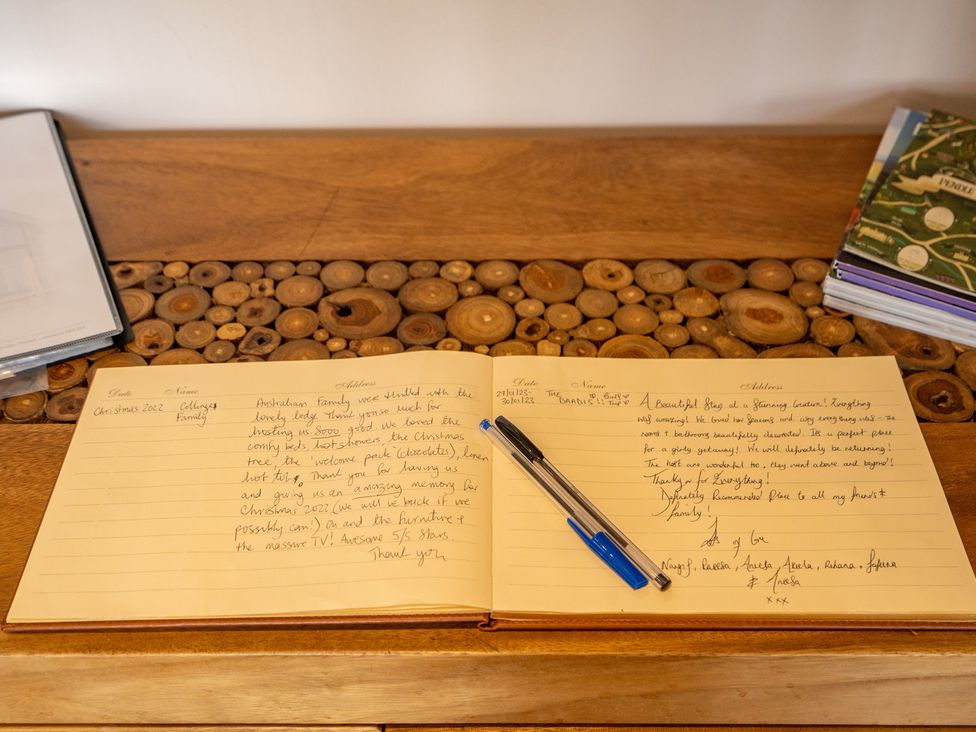 Date Name Address
Christmas 2022 Collinge Family
Australian Family were thrilled with the
lovely lodge Thank you so much for
hosting us Sooo good. We loved the
comfy beds, hot showers, the Christmas
tree, the welcome pack (chocolates), linen
hot tub, Thank you for having us
and giving us an amazing memory for
Christmas 2022 (We will be back if we
possibly can!) Oh and the furniture +
the massive TV! Awesome 5/5 Stars.
Thank you
Date Name Address
29/01/23-
30/01/23
THE
A Beautiful Stay at a Stunning location! Everything
was amazing! We loved how spacious and why everything was - the
rooms + bathrooms beautifully decorated. It's a perfect place
for a girly getaway! We will definately be returning!
The host are wonderful too, they went above and beyond!
Thanks for Everything!
Definately Recommended Place to all my friends &
family!
Raeesa, Aneesa, Akeela, Rehana,
& Aneesa
xxx
PENDLE